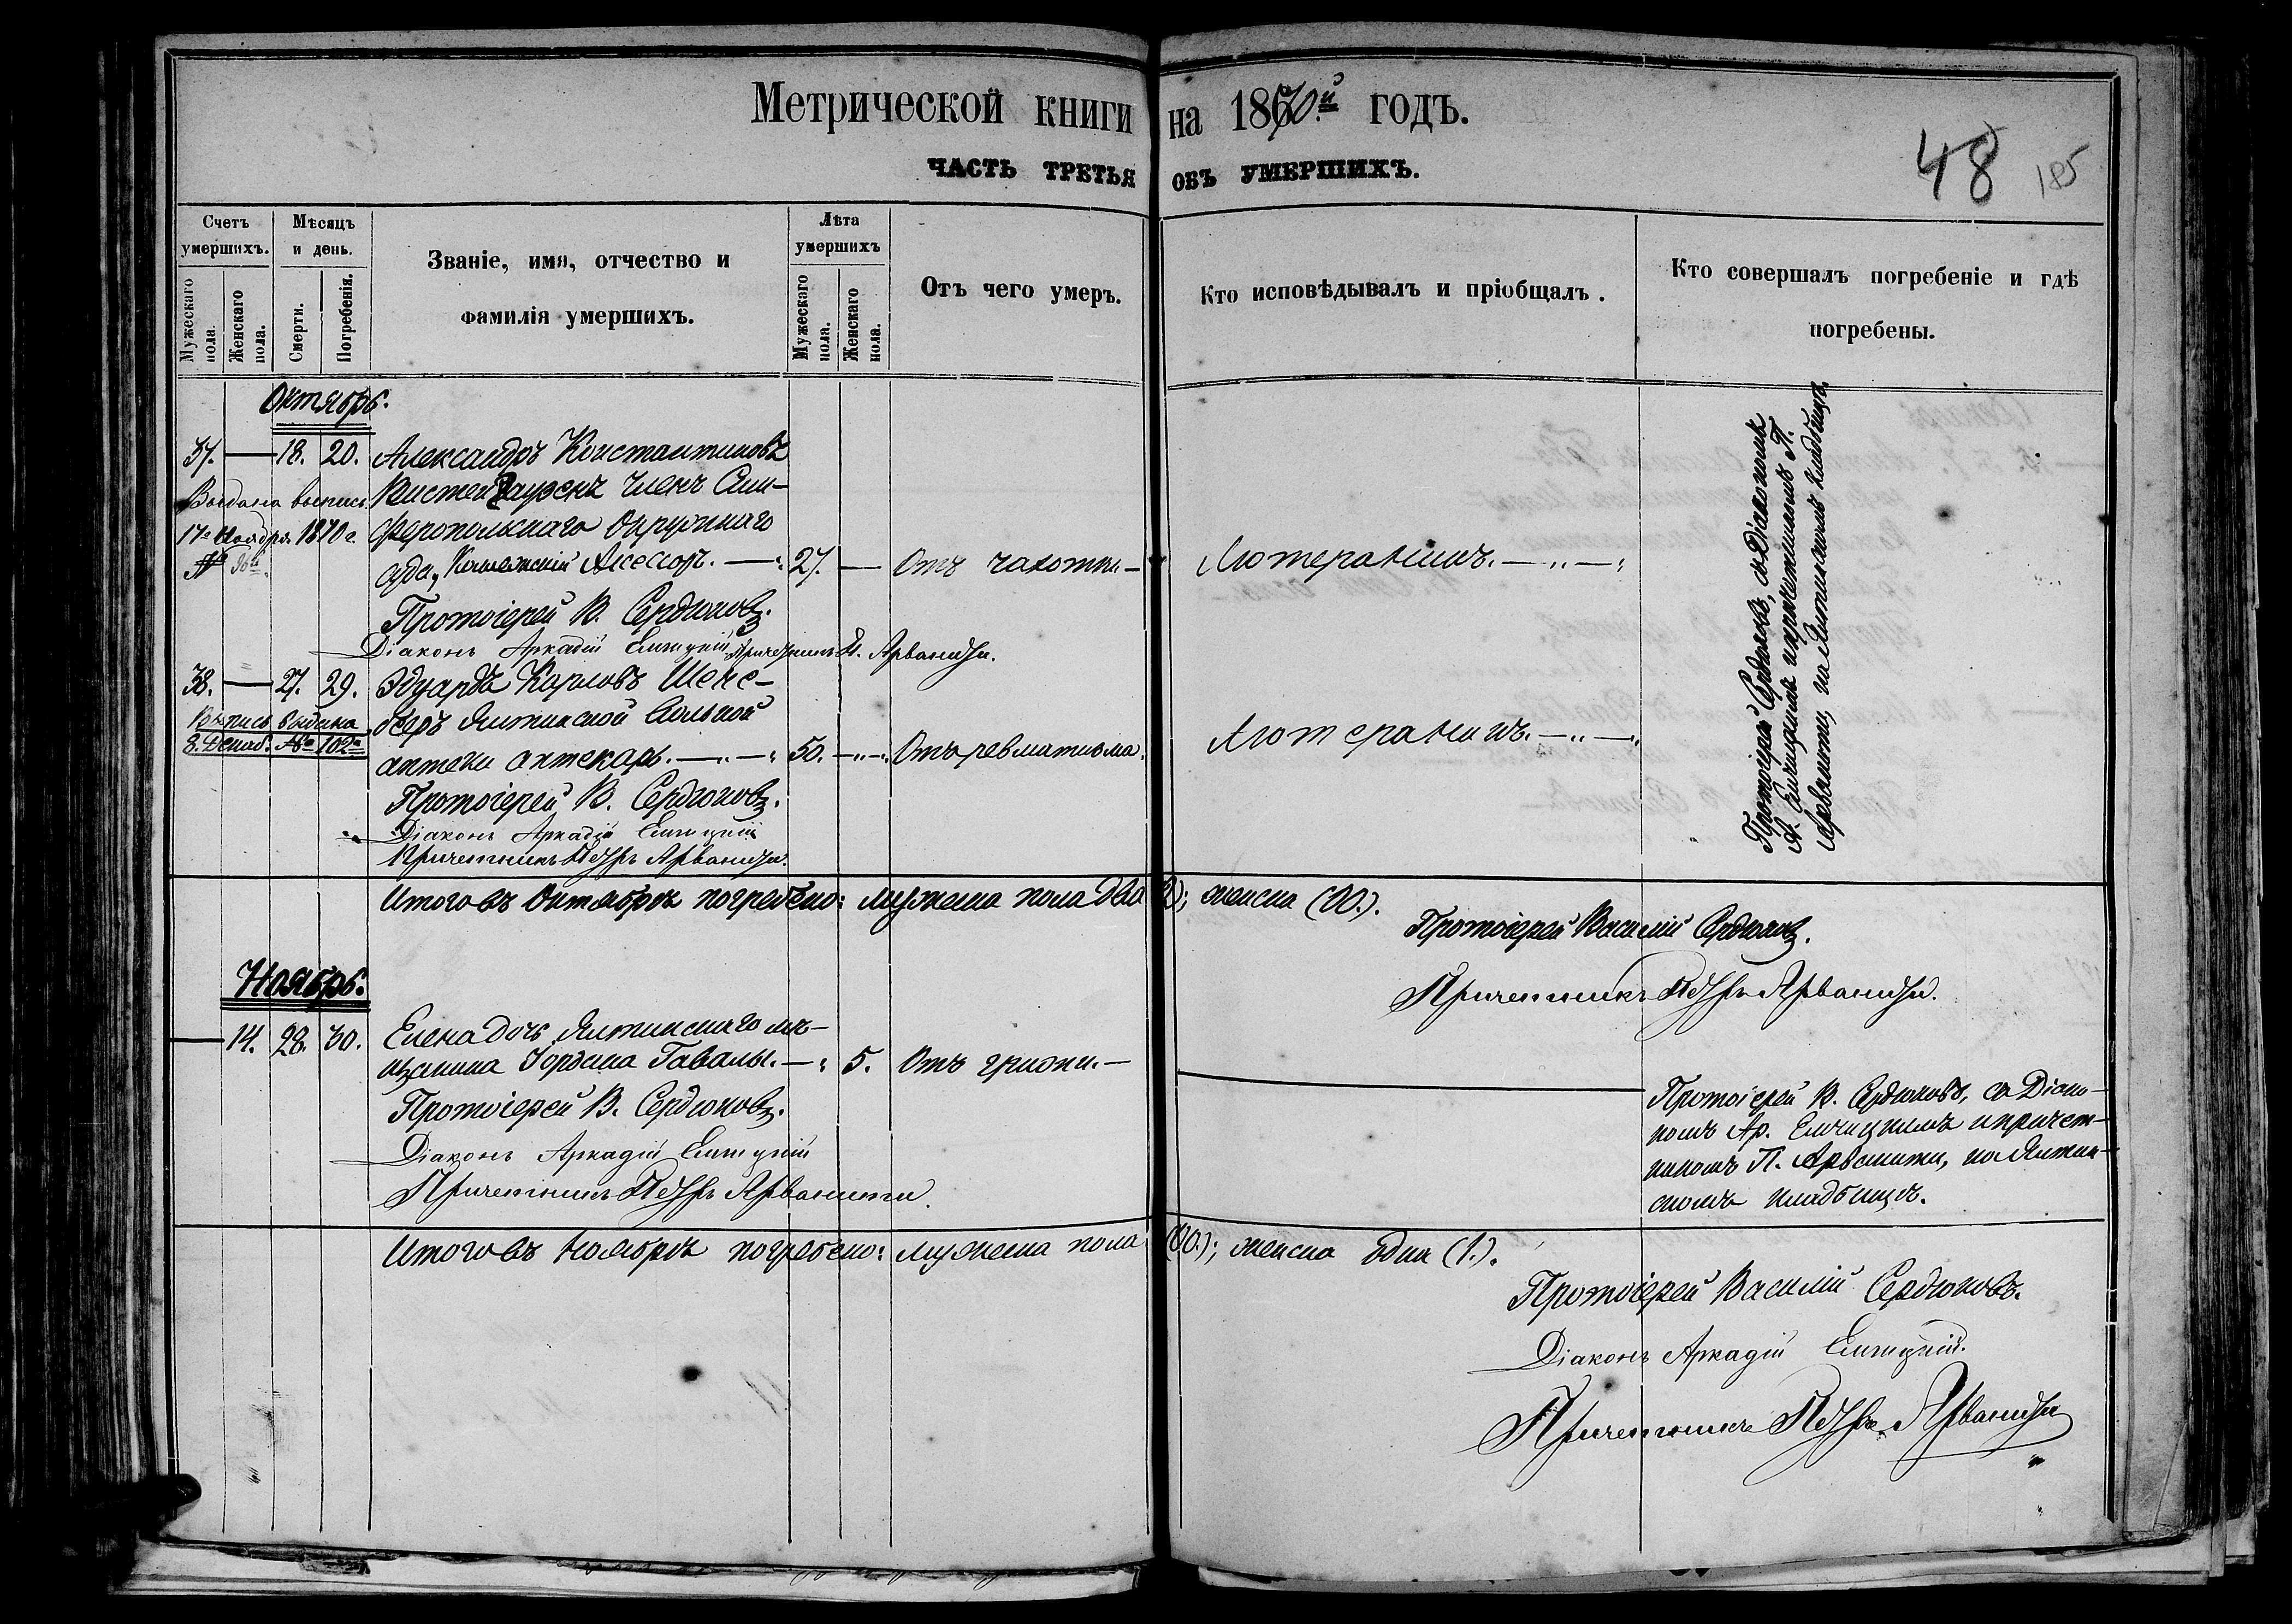 Метрической книги на 1870й годъ.
ЧАСТЬ ТРЕТЬЯ ОБЪ УМЕРШИХЪ.
48 185
Счетъ умершихъ.
Мужескаго пола.
Женскаго пола.
Мѣсяцъ и день.
Смерти.
Погребенія.
Званіе, имя, отчество и
фамилія умершихъ.
Лѣта умершихъ
Мужескаго пола.
Женскаго пола.
Отъ чего умеръ.
Кто исповѣдывалъ и пріобщалъ.
Кто совершалъ погребеніе и гдѣ
погребены.
Октябрь.
37. — 18. 20. Александръ Константиновъ
членъ Сим-
феропольскаго Окружнаго
Суда, Ассесоръ. — 27. — Отъ чахотки — Лютеранинъ. — „ —
Выдана выпись
17го Ноября 1870 г.
№ 96й
Протоіерей В. Сердюковъ.
Діаконъ Аркадій Елчицкій Причетникъ П. Арваниди.
38. — 27. 29. Эдуардъ Карловъ Шене-
беръ Ялтинской вольной
аптеки аптекарь. — „ — 50. — „ — Отъ ревматизма. Лютеранинъ. — „ —
Выпись выдана
8. Декаб. № 102й
Протоіерей В. Сердюковъ.
Діаконъ Аркадій Елчицкій
Причетникъ Петръ Арваниди.
Протоіерей Сердюковъ, съ Діакономъ
А. Елчицкимъ и причетникомъ П.
Арванити, на Ялтинскомъ кладбищѣ.
Итого въ Октябрѣ погребено: мужеска пола два (2); женска (00.).
Протоіерей Василій Сердюковъ.
Причетникъ Петръ Арваниди.
Ноябрь.
— 14. 28. 30. Елена дочь Ялтинскаго мѣ-
щанина Гавалы. — 5. Отъ грыжи. —
Протоіерей В. Сердюковъ.
Діаконъ Аркадій Елчицкій
Причетникъ Петръ Арванити.
Протоіерей В. Сердюковъ, съ Діако-
номъ Ар. Елчицкимъ и причет-
никомъ П. Арванити, на Ялтин-
скомъ кладбищѣ.
Итого въ Ноябрѣ погребено: мужеска пола (00.); женска одна (1.).
Протоіерей Василій Сердюковъ.
Діаконъ Аркадій Елчицкій.
Причетникъ Петръ Арваниди